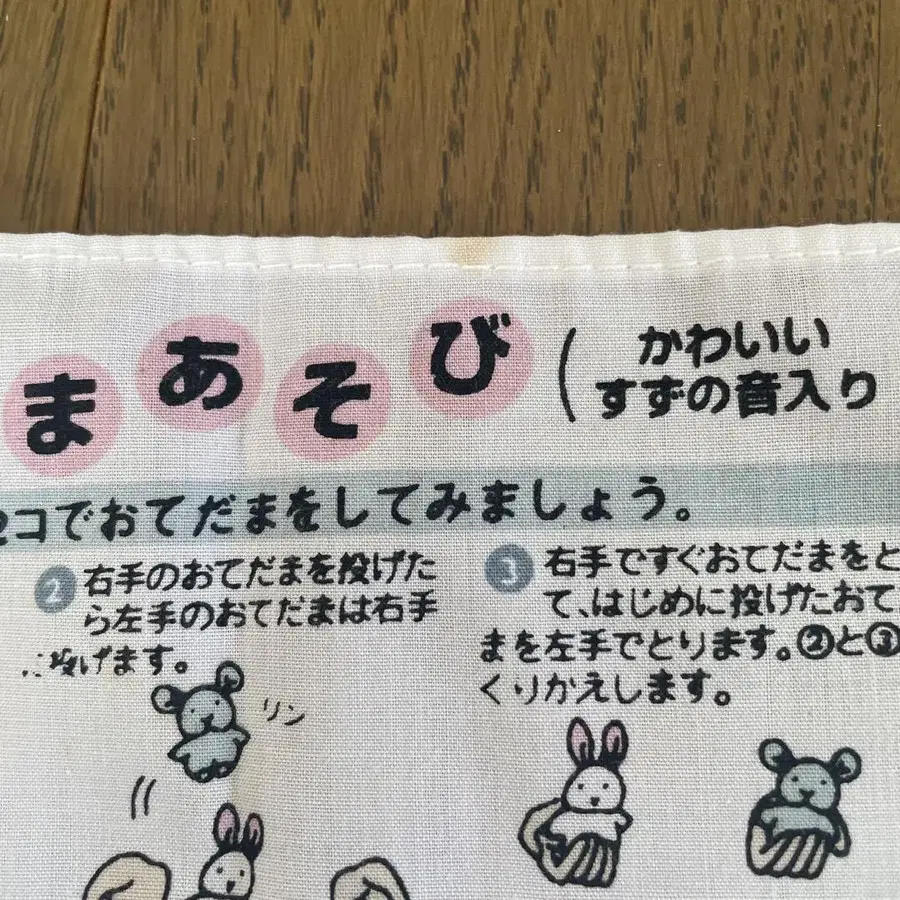 まあそび
(かわいい
すずの音入り
コでおてだまをしてみましょう。
② 右手のおてだまを投げた
ら左手のおてだまは右手
に投げます。
③ 右手ですぐおてだまをと
て、はじめに投げたおて
まを左手でとります。②と③
くりかえします。
リン